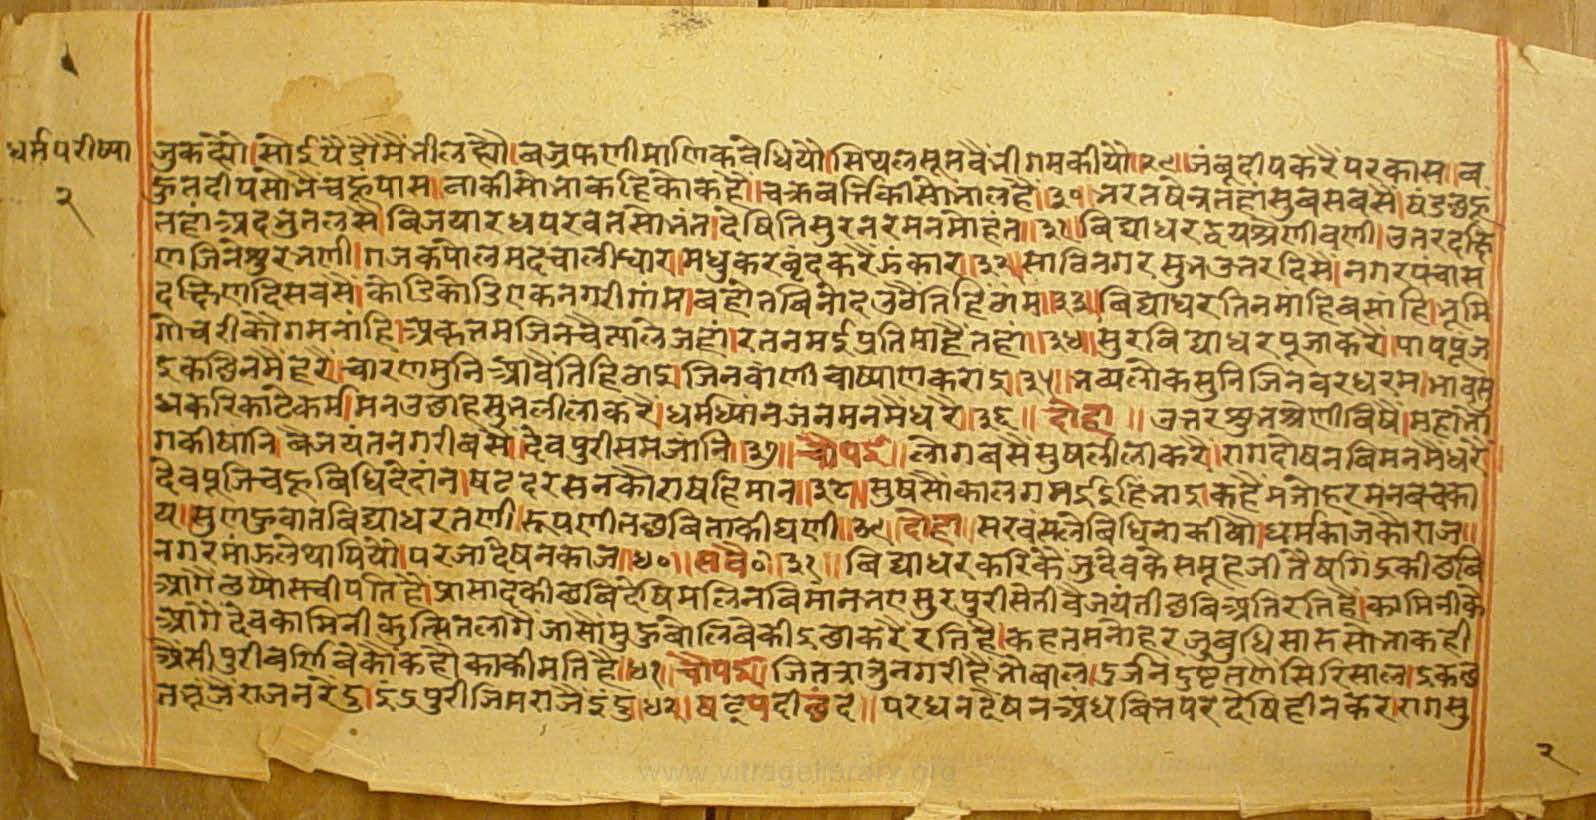 धर्मपरीष्या
२
जुकस्यो।सोईयैडोमैंनीलस्यो।बज्रफणीमाणिकबेधियौ।सिष्यलसूतवैनीगमकीयौ।२९।जंबूदीपकरैपरकास।ब
हुतदीपसोभैचहूपास।ताकीसोभाकहिकोकहै।चक्रबर्त्तिकीसोभालहै।३०।भरतषेत्रतहांसुबसबसै।षंडछह
तहांअदभुतलसै।बिजयारधपरवतसोभंत।देषितिसुरनरमनमोहंत।३१।बिद्याधरद्वयश्रेणीवणी।उतरदक्षि
णजिनेश्वरभणी।गजकपोलमदचालीधार।मधुकरबृंदकरैझंकार।३२।साठिनगरसुभउतरदिसै।नगरपंचास
दक्षिणदिसबसै।कोडिकोडिएकनगरीगांम।बहोतबिनोदउठैतिहिठाम।३३।बिद्याधरतिनमांहिबसाहि।भूमि
गोचरीकौगमनांहि।अकृत्तमजिनचैत्यालेजहां।रतनमईप्रतिमाहैतहां।३४।सुरबिद्याधरपूजाकरै।पापपूज
इकछिनमैहरै।चारणमुनिआवैतिहिठाइ।जिनवांणीवाष्याणकराइ।३५।भव्यलोकसुनिजिनबरधरम।भावसु
धकरिकाटेकर्म।मनउछाहसुभलीलाकरै।धर्मध्यांनजनमनमैधरै।३६॥दोहा॥उत्तरश्रुभश्रेणीबिषै।महाभो
गकीषांनि।बैजयंतनगरीबसै।देवपुरीसमजांनि॥३७॥चौपई॥लोगबसैसुषलीलाकरै।रागदोषनबिमनमैधरै॥
देवपूजिचहूबिधिदेदान।षटदरसनकौराषहिमान॥३८॥सुषसौकालगमईइहिभाइ।कहैमनोहरमनबचका
य।सुणहुबातबिद्याधरतणी।रूपणीतछबिताकीघणी॥३९।दोहा॥सरवंसलेबिधिनाकीयो।धर्मकाजकोराज॥
नगरमांझलेथापियौ।परजादेषनकाज॥४०॥सवै०३१॥बिद्याधरकरिकैजुदेवकेसमूहजीतैषगिंइकीछबि
आगैछप्यासचीपतिहै।प्रासादकीछबिदेषिमलिनबिमानभएसुरपुरीसेतीबैजयंतीछबिअतिरतिहै।कामिनीके
आगेदेवकामिनीकुत्सितलागैजासोमुहबोलिबेकीइछाकरैरतिहै।कहतमनोहरजुबुधिसारुसोभाकही
अैसीपुरीबर्णिबेकौकहौकाकीमतिहै॥४१॥चौपई॥जितशत्रुनगरीहैभोबाल।दुर्जनदुष्टतणेसिरिसाल।इकछ
तभूंजैराजनरेंदु।इंद्रपुरीजिमराजैइंदु॥४२॥षट्पदीछंद॥परधनदेषनअंधबितपरदेषिहीनकर।रागसु
२
www.vitragelibrary.org